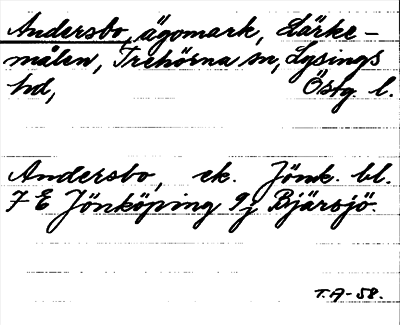 Andersbo, ägomark, Lärke-
målen, Trehörna sn, Lysings
hd, Östg. l.
Andersbo, ek. Jönk. bl.
7 E Jönköping 9j Bjärsjö.
T.A-58.